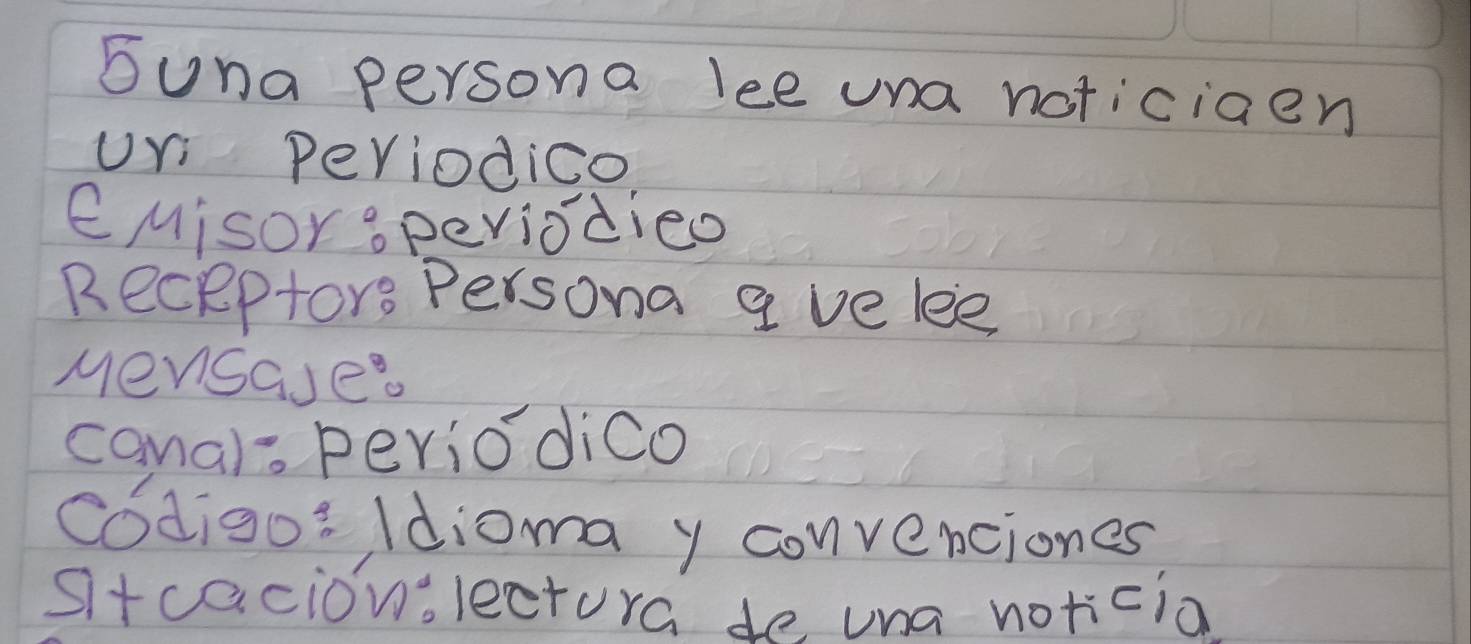 5 una persona lee una noticia en
un periodico.
Emisor: periódico
Receptor: Persona que lee
Mensaje:
canal: periódico
Código: Idioma y convenciones
Sitcación: lectura de una noticia.